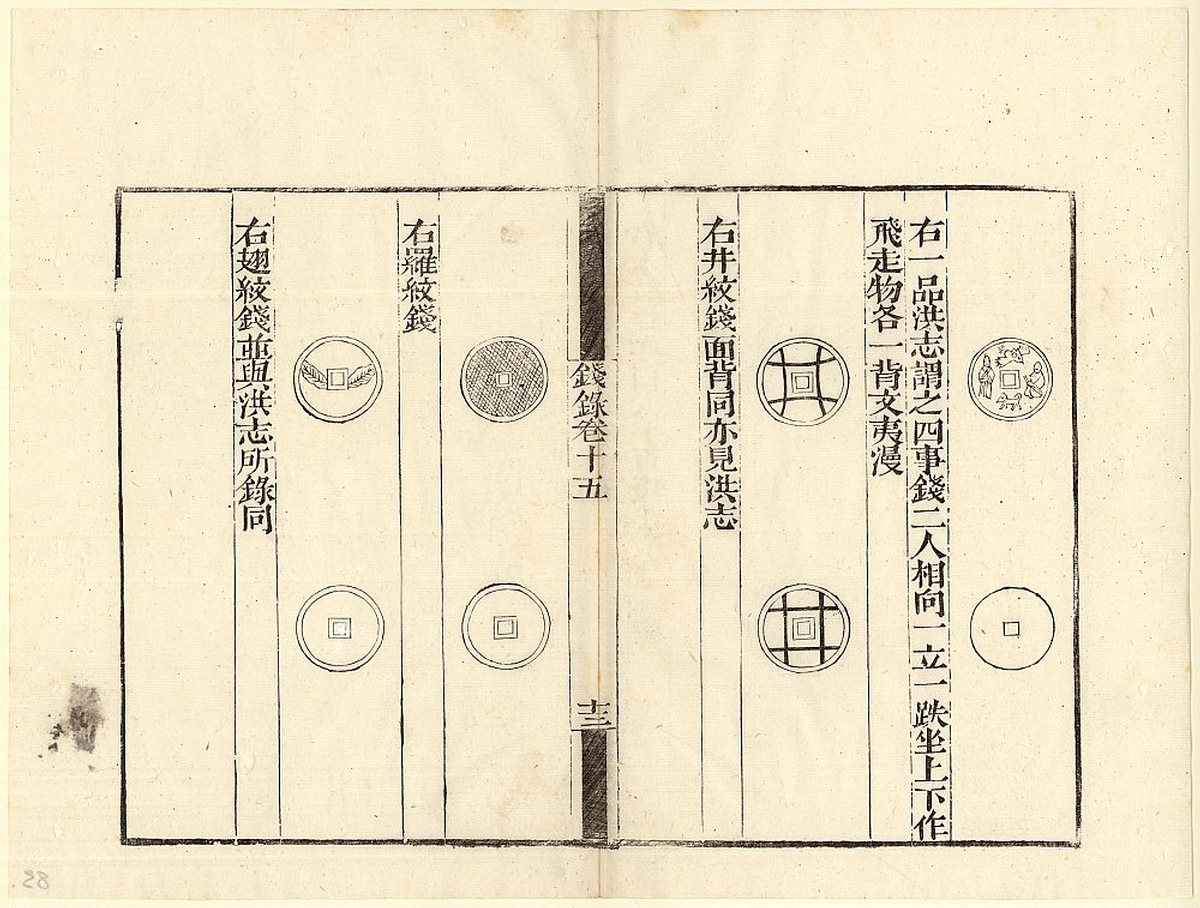 右一品洪志謂之四事錢二人相向一立一趺坐上下作
飛走物各一背文夷漫
右井紋錢面背同亦見洪志
錢錄卷十五
十三
右羅紋錢
右翅紋錢並與洪志所錄同
88